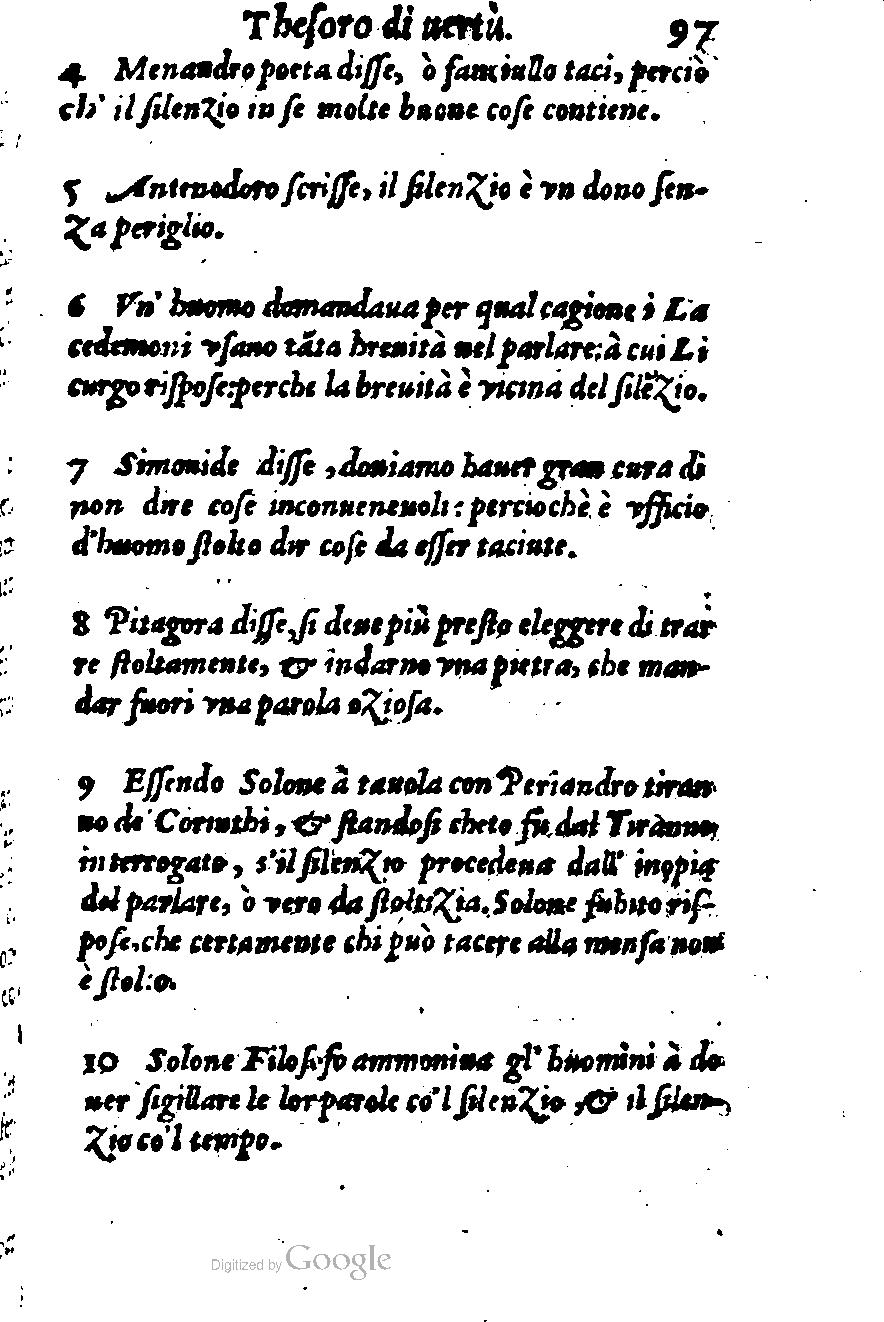 Theſoro di uertù. 97
4 Menandro poeta diſſe, ò fanciullo taci, perciò
ch' il ſilenzio in ſe molte buone coſe contiene.
5 Antenodoro ſcriſſe, il ſilenzio è vn dono ſen-
za periglio.
6 Vn' huomo domandaua per qual cagione i La
cedemoni vſano tãta breuità nel parlare: à cui Li
curgo riſpoſe: perche la breuità è vicina del ſilẽzio.
7 Simonide diſſe, douiamo hauer gran cura di
non dire coſe inconueneuoli: perciochè è vfficio
d'huomo ſtolto dir coſe da eſſer taciute.
8 Pitagora diſſe, ſi deue più preſto eleggere di trar
re ſtoltamente, & indarno vna pietra, che man-
dar fuori vna parola ozioſa.
9 Eſſendo Solone à tauola con Periandro tiran
no de' Corinthi, & ſtandoſi cheto fu dal Tiranno,
interrogato, s'il ſilenzio procedeua dall' inopia
del parlare, ò vero da ſtoltizia. Solone ſubito riſ-
poſe, che certamente chi può tacere alla menſa non
è ſtolto.
10 Solone Filoſofo ammoniua gl' huomini à do
uer ſigillare le lor parole co'l ſilenzio, & il ſilen-
zio co'l tempo.
Digitized by Google